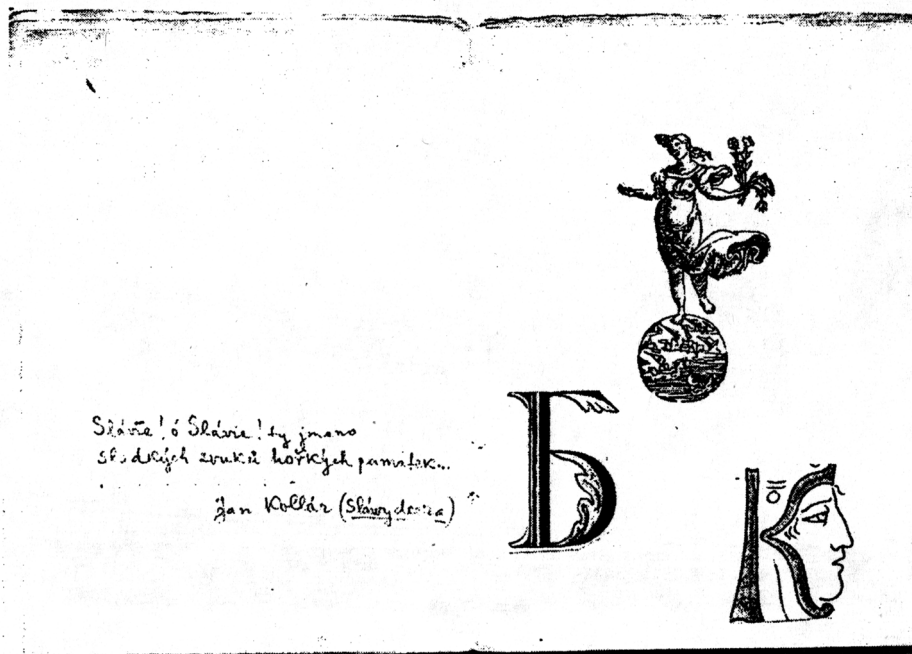 Slávie! ó Slávie! ty jmeno
sladkých zvuků hořkých památek...
Jan Kollár (Slávy dcera)
Б
К